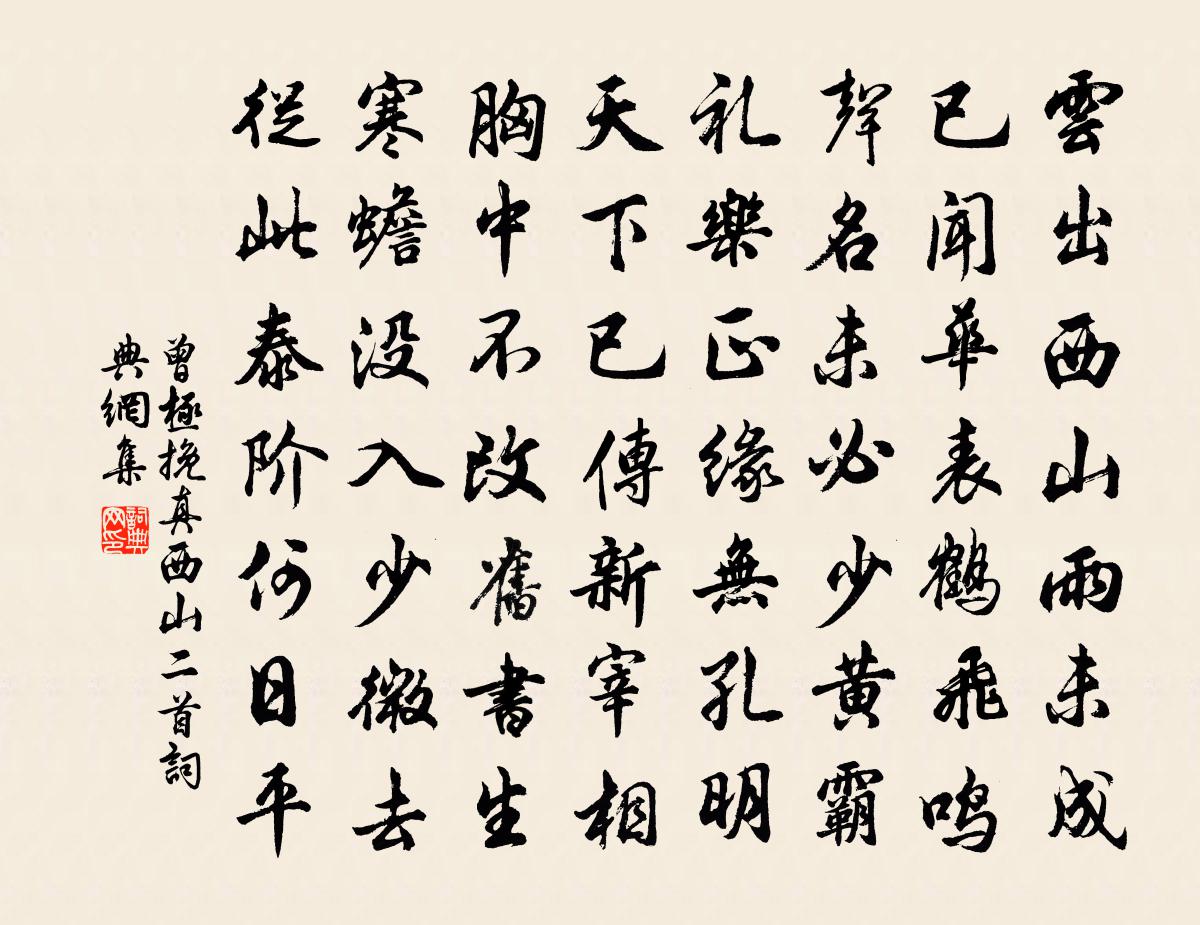 雲出西山雨未成
已闻華表鶴飛鸣
聲名未必少黄霸
礼樂正緣無孔明
天下已傳新宰相
胸中不改舊書生
寒蟾没入少微去
從此泰阶何日平
曾極挽真西山二首詞
典網集
詞典
网印